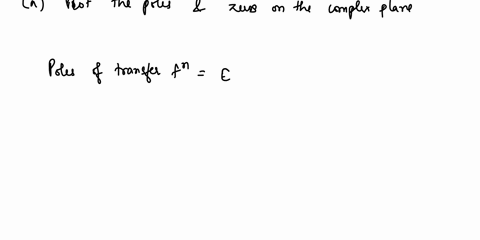 (a) Plot the poles & zeros on the complex plane
Poles of transfer fⁿ = E